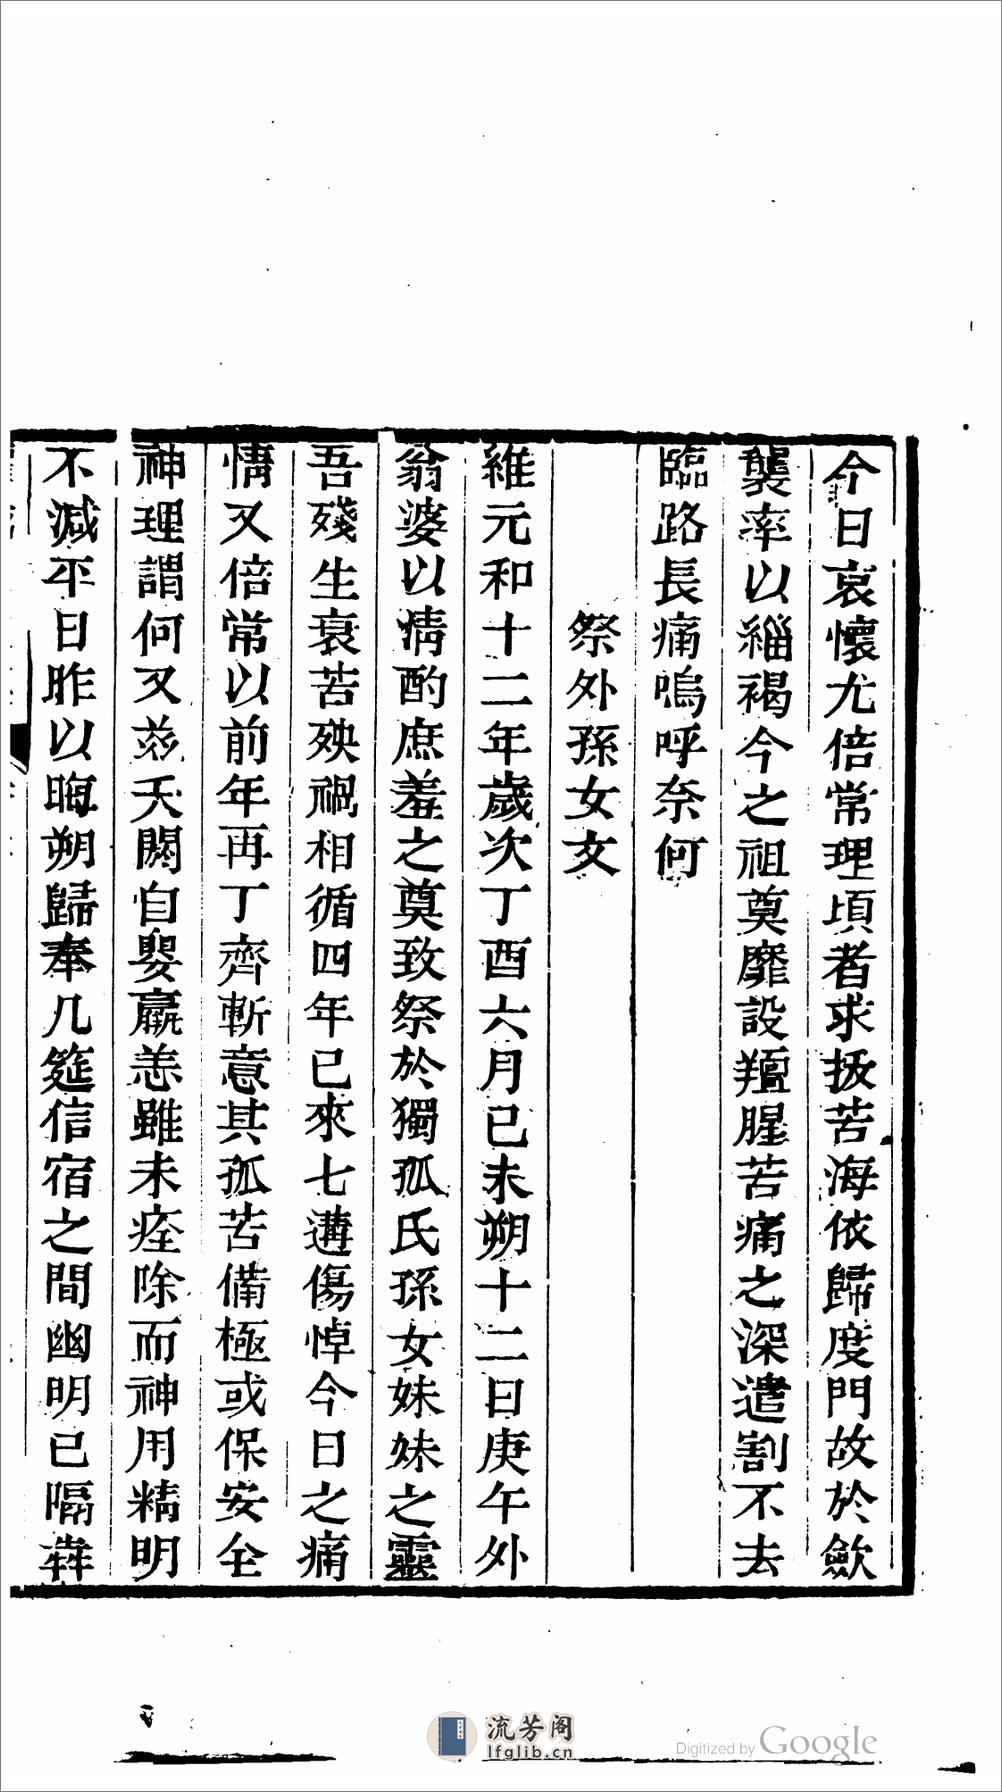 今日哀懷尤倍常理頃者求拔苦海依歸度門故於歛
襲率以緇褐今之祖奠靡設羶腥苦痛之深遣割不去
臨路長痛嗚呼奈何
祭外孫女文
維元和十二年歲次丁酉六月已未朔十二日庚午外
翁婆以情酌庶羞之奠致祭於獨孤氏孫女妹妹之靈
吾殘生衰苦殃禍相循四年已來七遘傷悼今日之痛
情又倍常以前年再丁齊斬意其孤苦備極或保安全
神理謂何又茲夭閼自嬰羸恙雖未痊除而神用精明
不減平日昨以晦朔歸奉几筵信宿之間幽明已隔
流芳阁
lfglib.cn
Digitized by Google